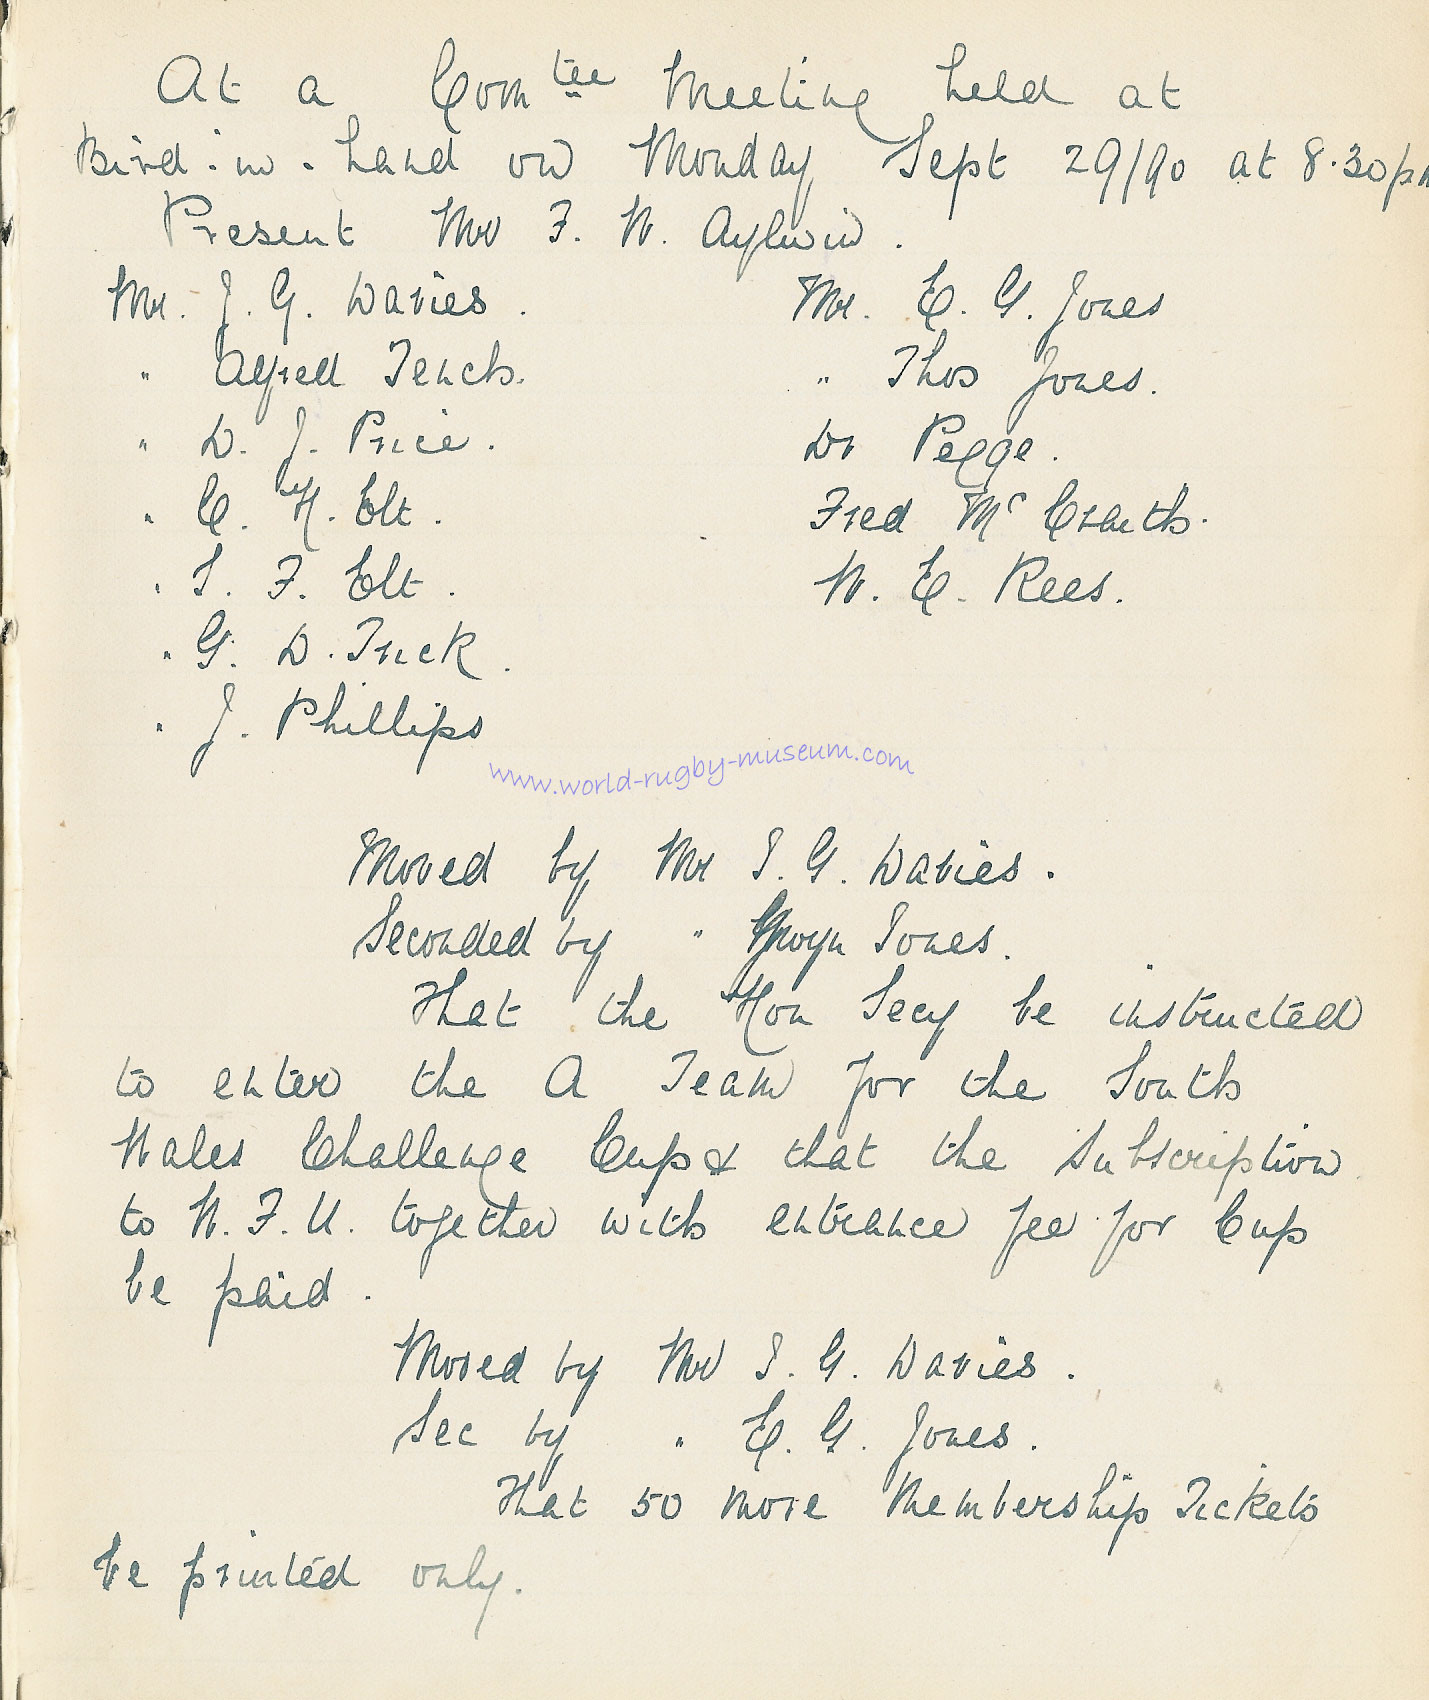 At a Com tee Meeting held at
Bird-in-hand on Monday Sept 29/90 at 8.30 pm
Present Mr F. W. Aylwin.
Mr. J. G. Davies.
" Alfred Tench.
" D. J. Price.
" C. H. Elt.
" S. F. Elt.
" G. D. Trick.
" J. Phillips
Mr. E. G. Jones
" Thos Jones.
Dr Pegge.
Fred Mc Craith.
W. E. Rees.
www.world-rugby-museum.com
Moved by Mr J. G. Davies.
Seconded by " Gwyn Jones.
That the Hon Secy be instructed
to enter the A Team for the South
Wales Challenge Cup & that the Subscription
to W. F. U. together with entrance fee for Cup
be paid.
Moved by Mr J. G. Davies.
Sec by " E. G. Jones.
That 50 more Membership Tickets
be printed only.